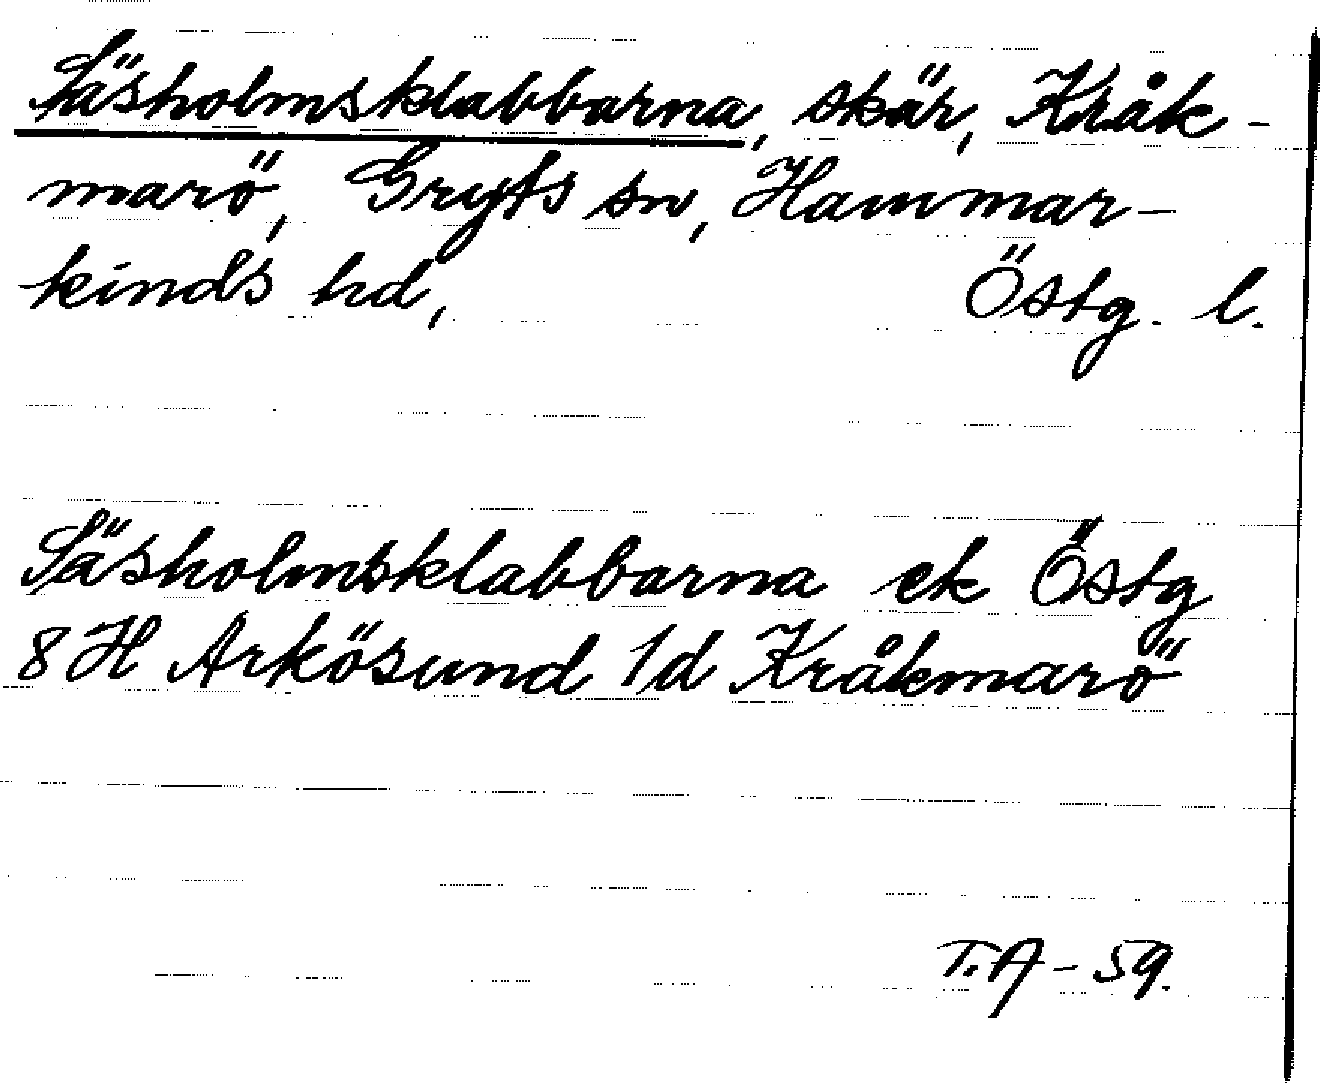 Säsholmsklabbarna, skär, Kråk-
marö, Gryts sn, Hammar-
kinds hd, Östg. l.
Säsholmsklabbarna ek Östg
8 H Arkösund 1d Kråkmarö
T.A-59.